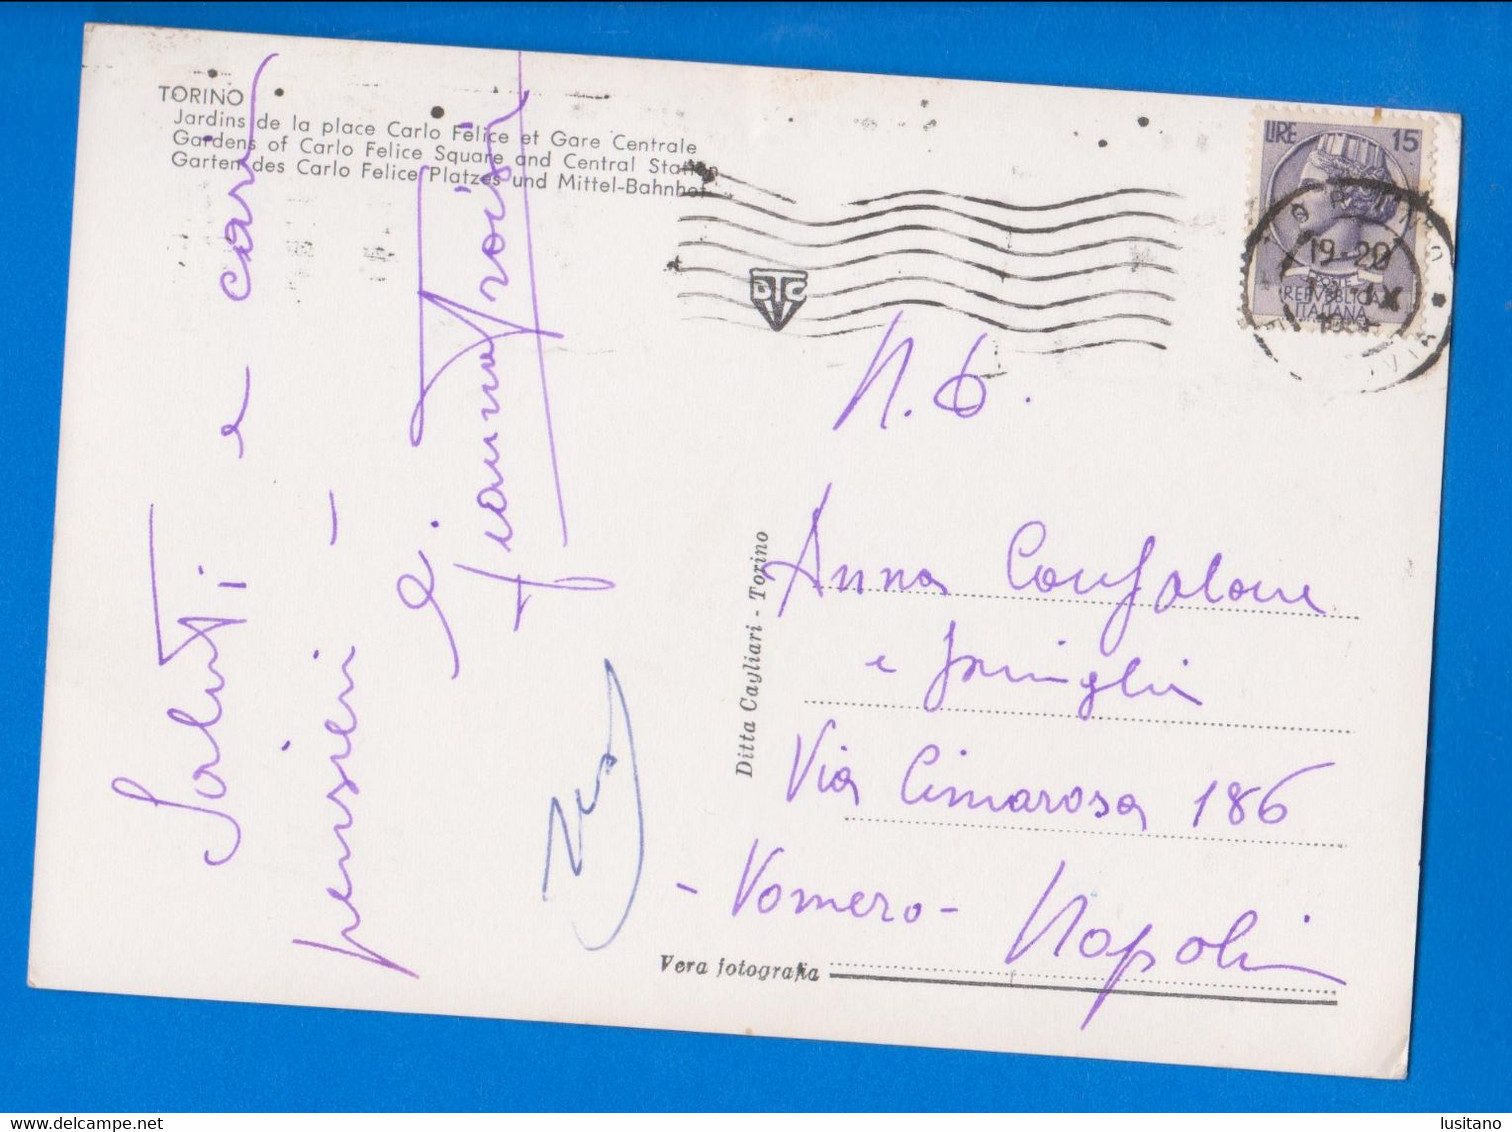 TORINO
Jardins de la place Carlo Felice et Gare Centrale
Gardens of Carlo Felice Square and Central Station
Garten des Carlo Felice Platzes und Mittel-Bahnhof
LIRE 15
19-20
IX
POSTE
REPVBBLICA
ITALIANA
Saluti e cari
pensieri -
N. D.
Anna Confalone
e famiglia
Via Cimarosa 186
- Vomero - Napoli
Ditta Cagliari - Torino
Vera fotografia
lusitano